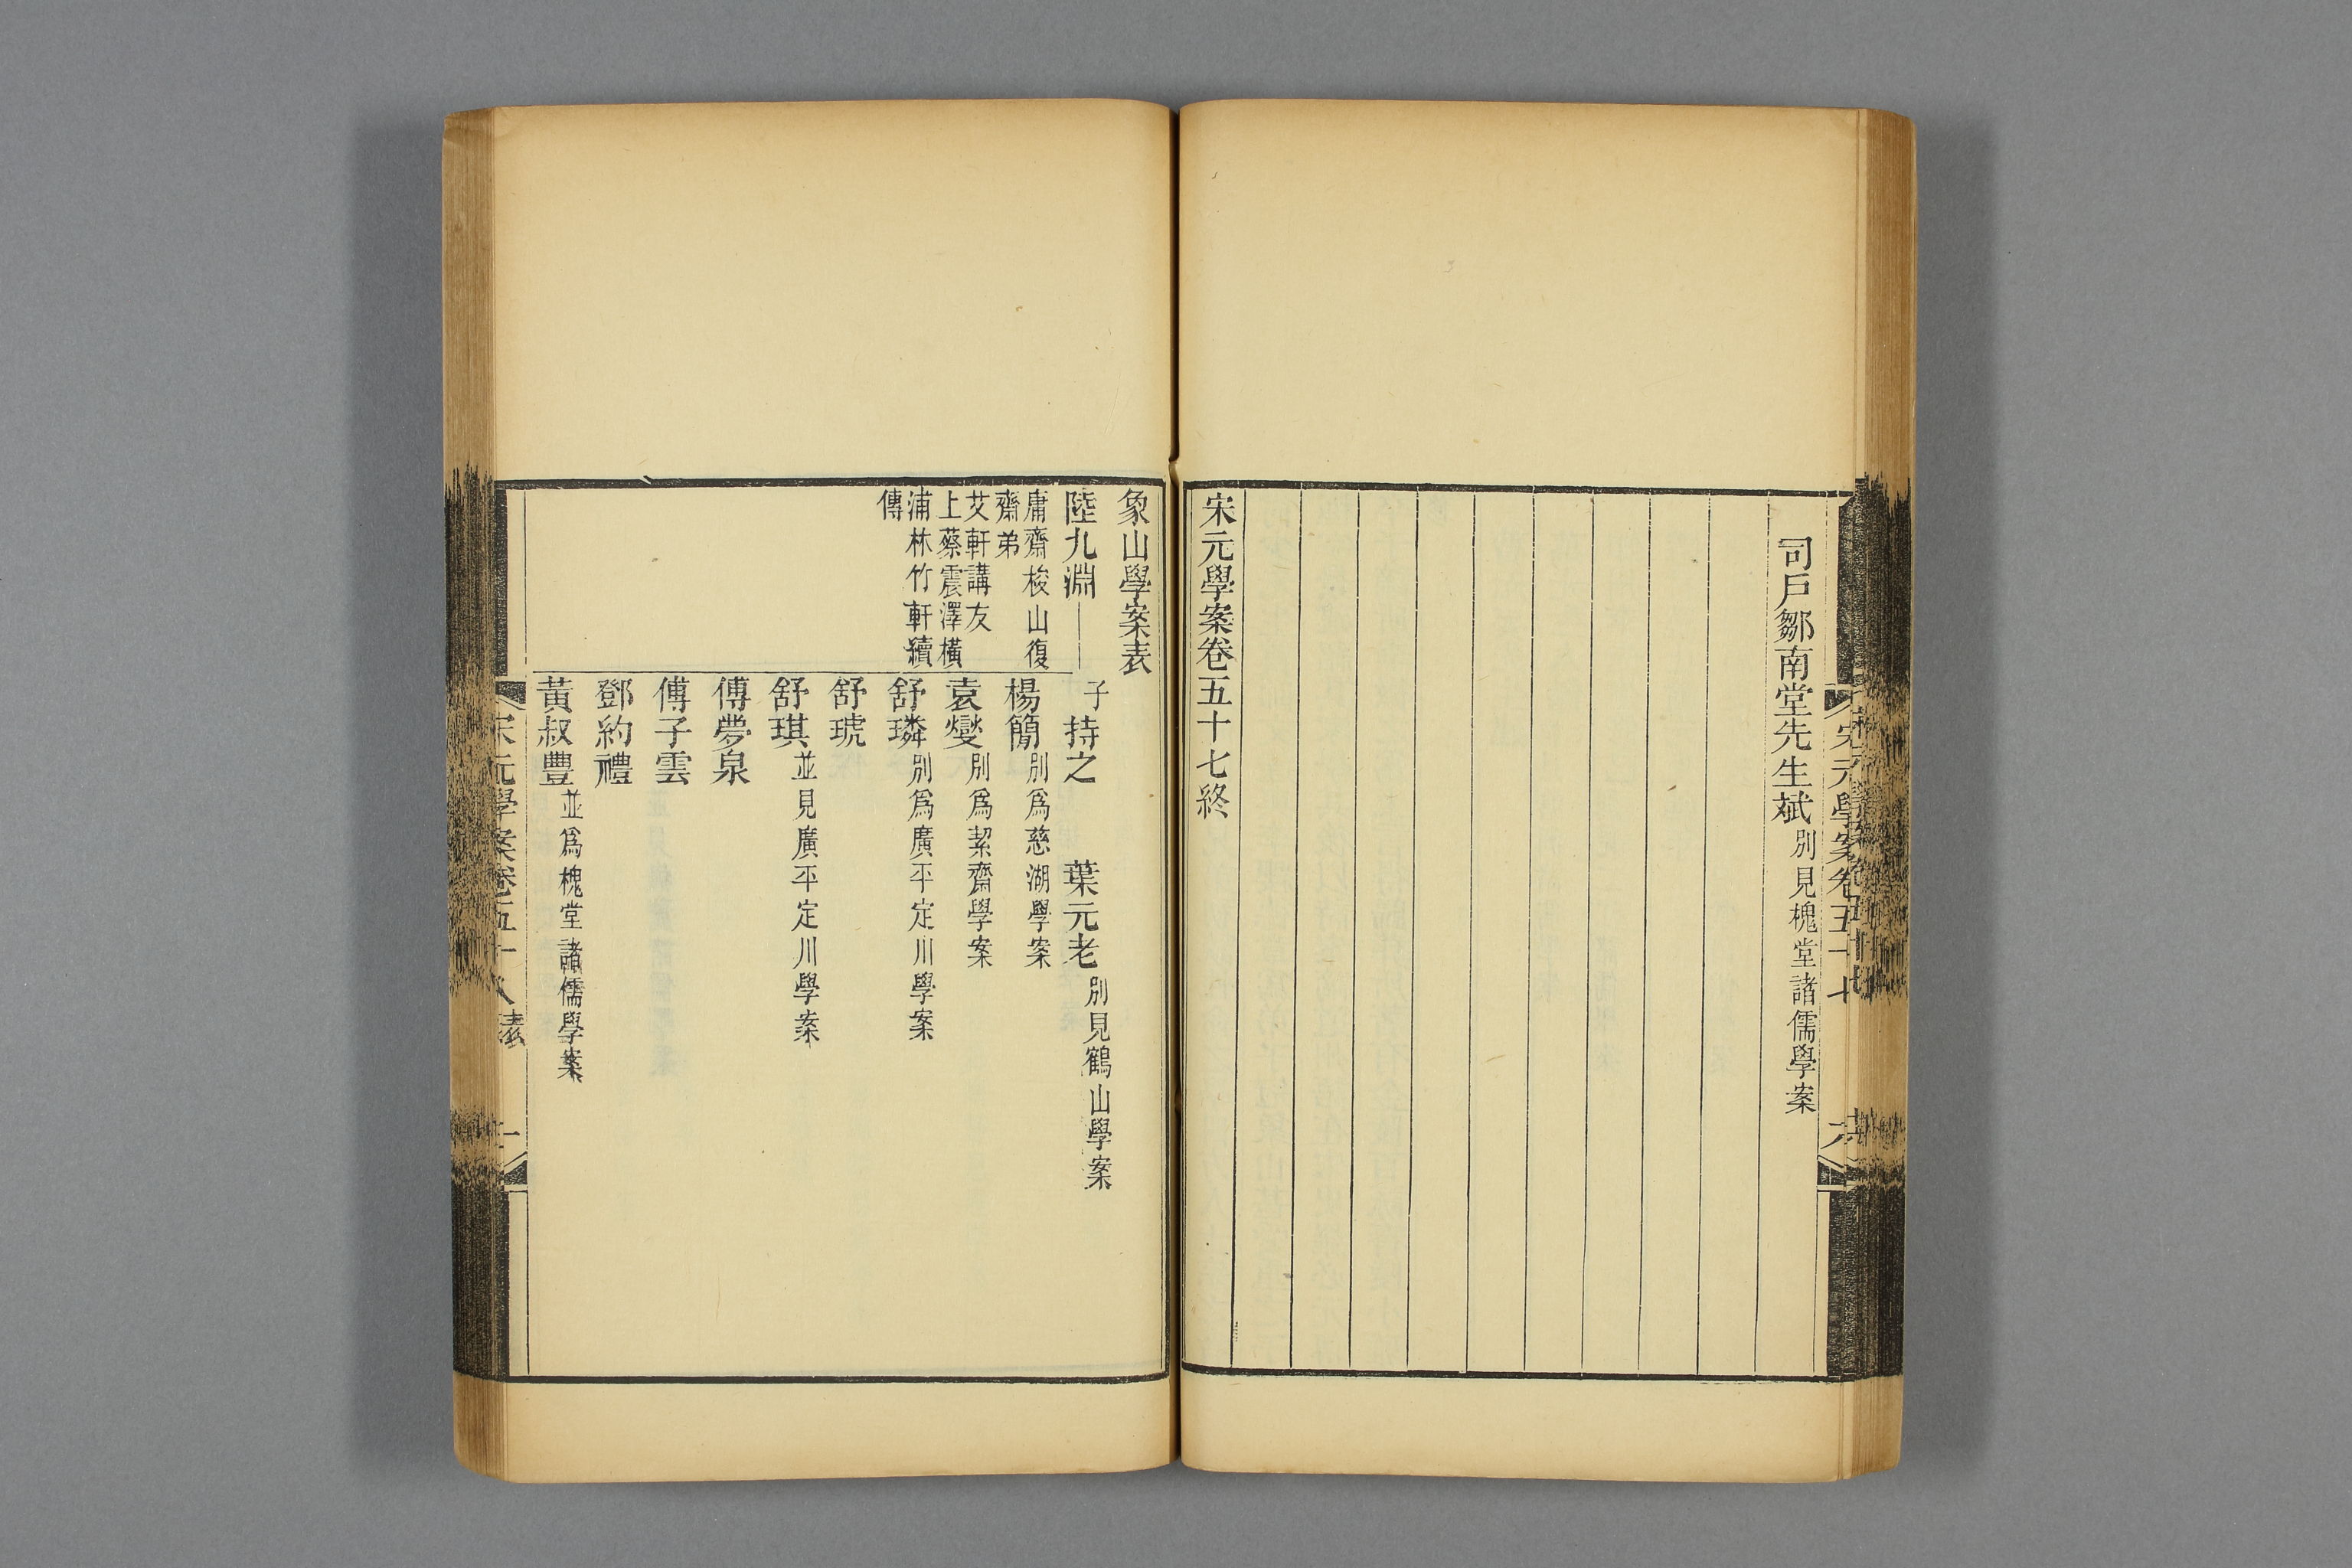 司戶鄒南堂先生斌別見槐堂諸儒學案
宋元學案卷五十七終
象山學案表
陸九淵
子持之
葉元老別見鶴山學案
庸齋梭山復
齋弟
艾軒講友
上蔡震澤橫
浦林竹軒續
傳
楊簡別爲慈湖學案
袁燮別爲絜齋學案
舒璘別爲廣平定川學案
舒琥
舒琪並見廣平定川學案
傅夢泉
傅子雲
鄧約禮
黃叔豐並爲槐堂諸儒學案
宋元學案卷五十八